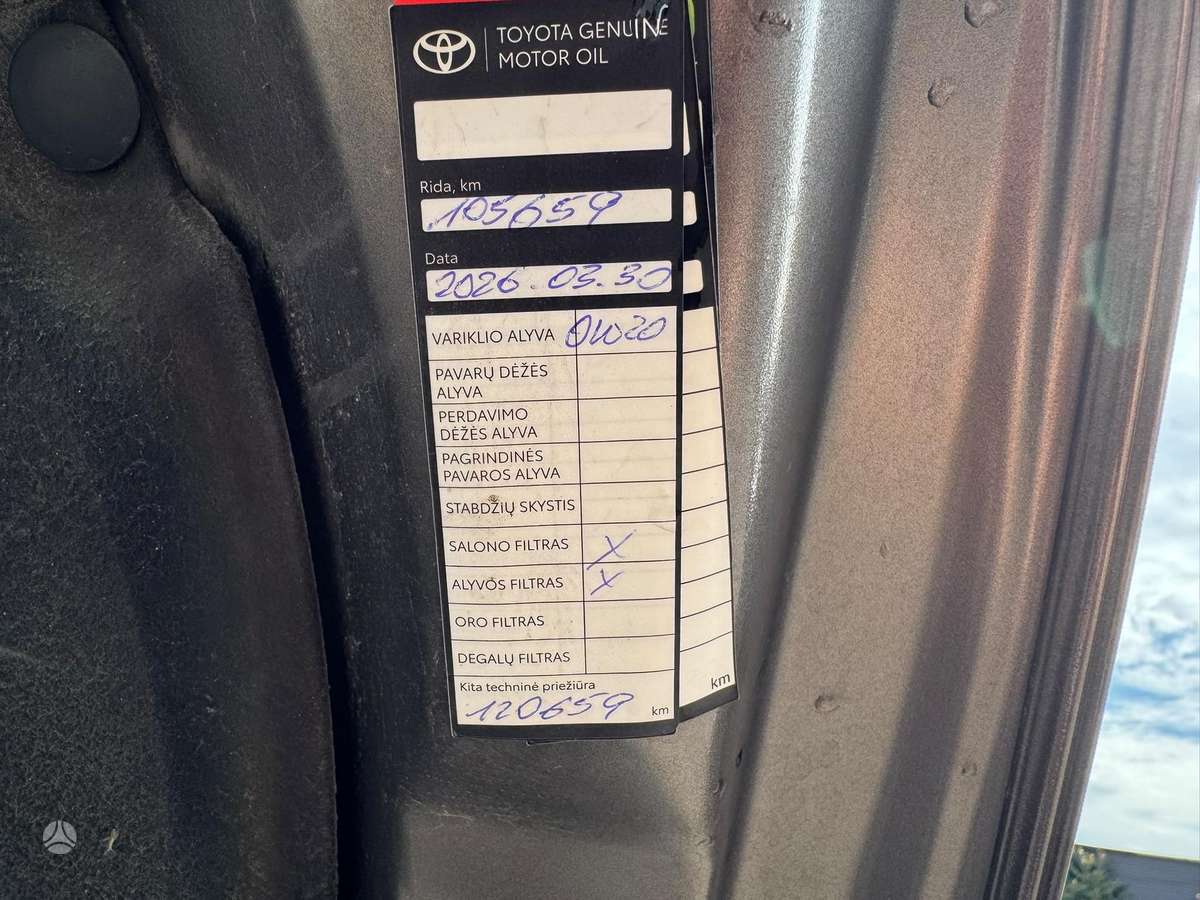 TOYOTA GENUINE
MOTOR OIL
Rida, km
105659
Data
2026.03.30
VARIKLIO ALYVA 0W20
PAVARŲ DĖŽĖS
ALYVA
PERDAVIMO
DĖŽĖS ALYVA
PAGRINDINĖS
PAVAROS ALYVA
STABDŽIŲ SKYSTIS
SALONO FILTRAS X
ALYVOS FILTRAS X
ORO FILTRAS
DEGALŲ FILTRAS
Kita techninė priežiūra
120659 km
km